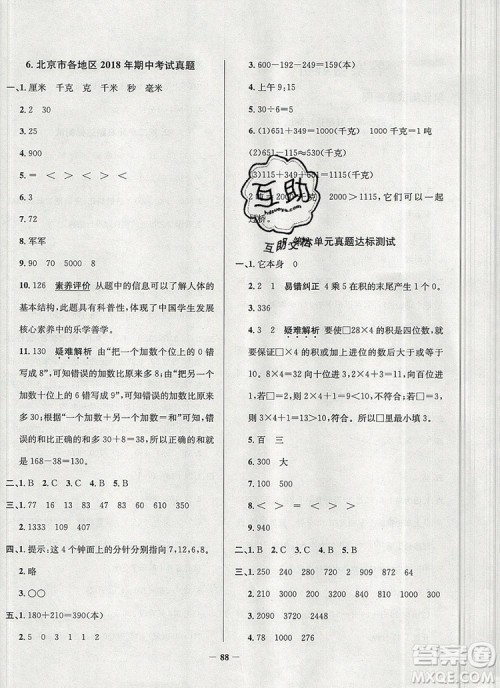 6. 北京市各地区 2018 年期中考试真题
一、1. 厘米 千克 克 千米 秒 毫米
2. 2 30
3. 25
4. 900
5. = < > < < >
6. 9 30
7. 60
8. 军军
9. 90 70 8 5000
10. 126 素养评价 题中的信息可以了解人体的
基本结构，此题具有科普性，体现了中国学生发展
核心素养中的乐学善学。
11. 130 疑难解析 由“把一个加数个位上的 0 错
写成 8”，可知错误的加数比原来多 8；由“把一个加
数十位上的 6 错写成 9”，可知错误的加数比原来
多 30；错误的和比正确的和多 30＋8＝38，所以就
是 168－38＝130。
二、1. C 2. B 3. C
三、1. 77 34 15 32 300 13 83 810
2. 1333 109 408
四、1. 提示：这 4 个钟面上的分针分别指向 7,12,6,8。
2. 略
五、1. 180＋210＝390(本)
2. 5 0 3 1 1 1 2
3. 600－192－249＝159(本)
4. 上午 9:15
5. 略
6. (1) 651＋349＝1000(千克) 1000 千克＝1 吨
(3) 1115＋349＋651
2000 千克 2000＞1115，它们可以一起
过桥。
单元真题达标测试
一、1. 它本身 0
2. 4 2 1 易错纠正 4 乘 5 在积的末尾产生 1 个 0。
3. 336
4. 3 2 疑难解析 要使□28×4 的积是四位数，就
要保证□×4 的积或加进位的数后满十，若□＝2，
2×4＝8，8 向十位进 1，8＋1＝9，不符合。若□＝
3，3×4＝12，12＞10，符合。所以□里最小填 3。
5. 百 三
6. 300 大
7. 450
8. < > = > < =
二、1. B 2. B 3. C 4. C 5. A
三、1. 250 240 280 720 320 640
60 1200 0 2000 350 0
2. 1422 2208 2120 450 1290 2877
3. 940 890 1000 224
4. 78 156 312 624
88
互助
互助文库
答案圈
MXQE.COM